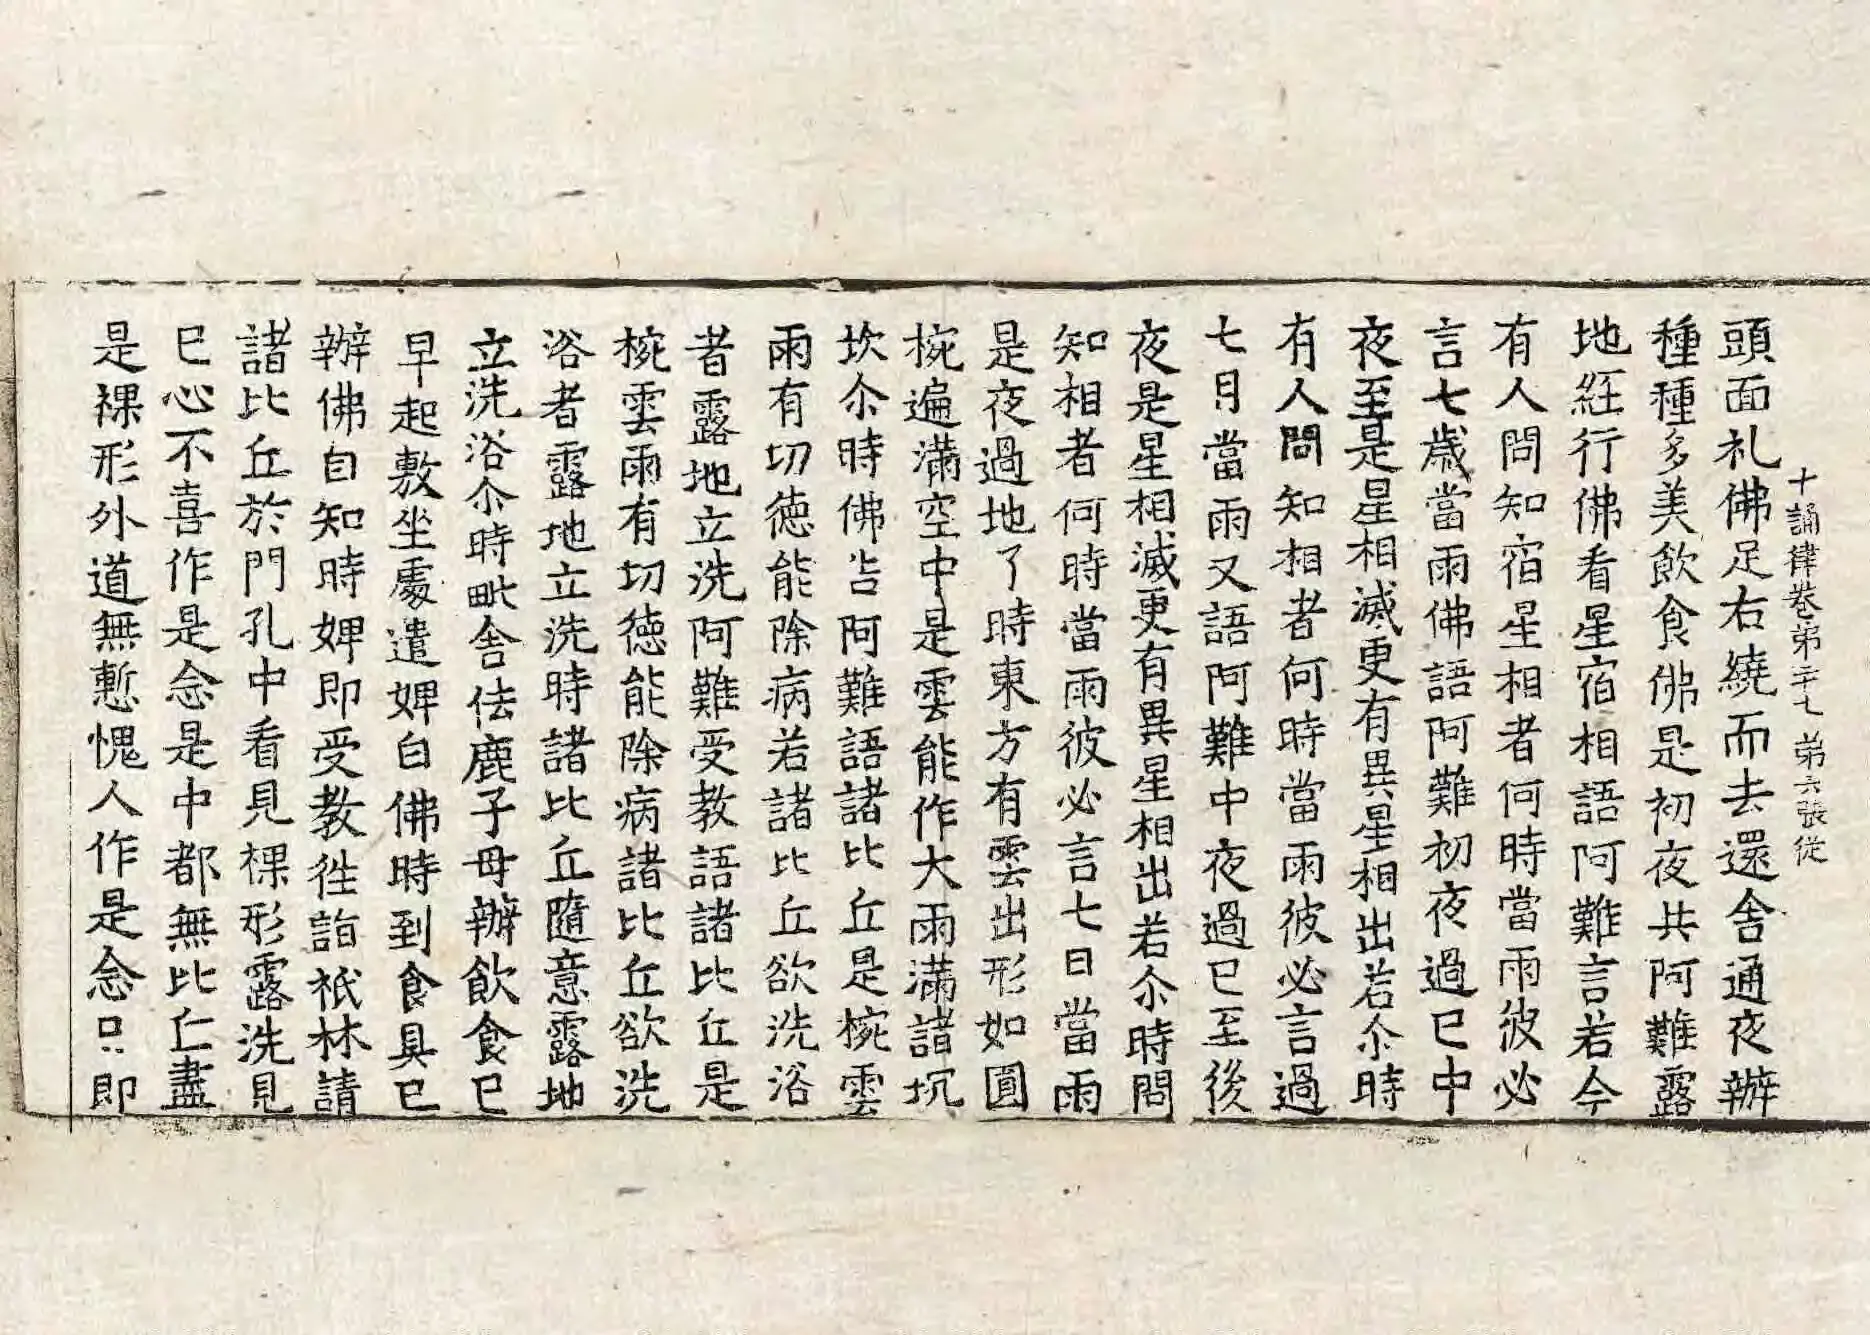 十誦律卷第二十七 第六張 從
頭面礼佛足右繞而去還舍通夜辦
種種多美飲食佛是初夜共阿難露
地經行佛看星宿相語阿難言若今
有人問知宿星相者何時當雨彼必
言七歲當雨佛語阿難初夜過已中
夜至是星相滅更有異星相出若尒時
有人問知相者何時當雨彼必言過
七月當雨又語阿難中夜過已至後
夜是星相滅更有異星相出若尒時問
知相者何時當雨彼必言七日當雨
是夜過地了時東方有雲出形如圓
椀遍滿空中是雲能作大雨滿諸坑
坎尒時佛告阿難語諸比丘是椀雲
雨有切德能除病若諸比丘欲洗浴
者露地立洗阿難受教語諸比丘是
椀雲雨有切德能除病諸比丘欲洗
浴者露地立洗時諸比丘隨意露地
立洗浴尒時毗舍佉鹿子母辦飲食已
早起敷坐處遣婢白佛時到食具已
辦佛自知時婢即受教往詣祇林請
諸比丘於門孔中看見裸形露洗見
已心不喜作是念是中都無比丘盡
是裸形外道無慙愧人作是念已即